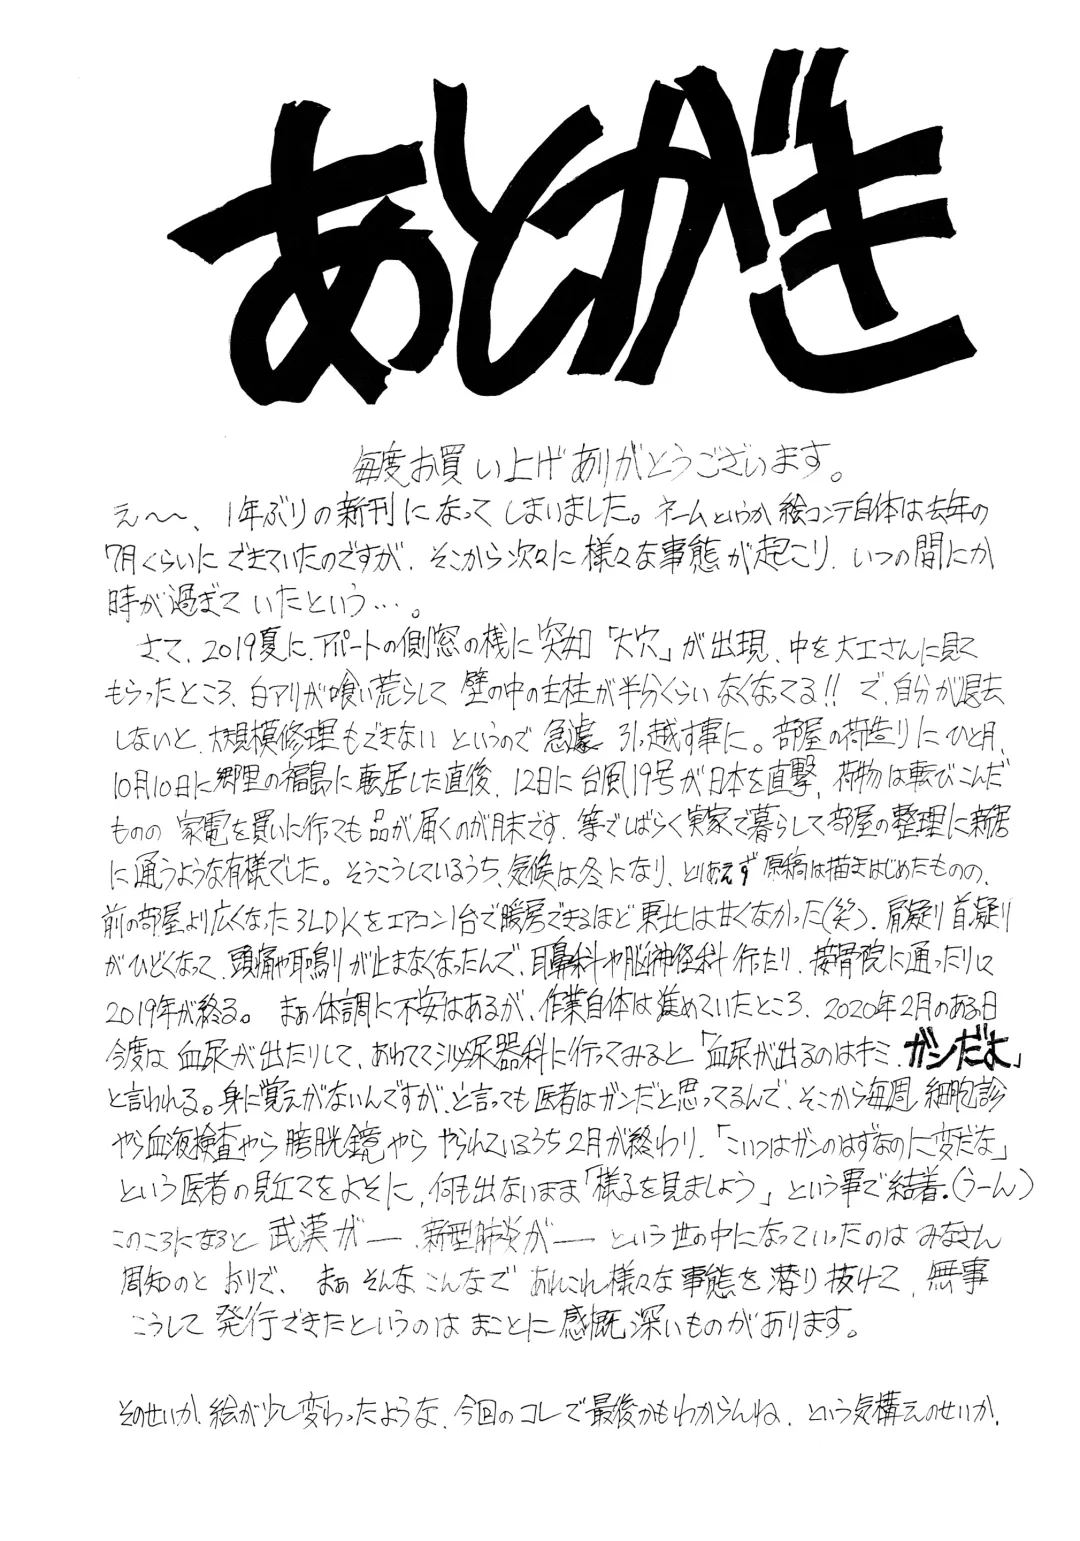 あとがき
毎度お買い上げありがとうございます。
え〜〜、1年ぶりの新刊になってしまいました。ネームというか絵コンテ自体は去年の
7月くらいにできていたのですが、そこから次々に様々な事態が起こり、いつの間にか
時が過ぎていたという…。
さて、2019夏に、アパートの側窓の桟に突如「大穴」が出現、中を大工さんに見て
もらったところ、白アリが喰い荒らして壁の中の主柱が半分くらいなくなってる!!で、自分が退去
しないと、大規模修理もできないというので急遽引っ越す事に。部屋の荷造りにひと月、
10月10日に郷里の福島に転居した直後、12日に台風19号が日本を直撃、荷物は転びこんだ
ものの家電を買いに行っても品が届くのが月末です、等でしばらく実家で暮らして部屋の整理に新居
に通うような有様でした。そうこうしているうち、気候は冬になり、とりあえず原稿は描きはじめたものの、
前の部屋より広くなった3LDKをエアコン1台で暖房できるほど東北は甘くなかった(笑)、肩凝り首凝り
がひどくなって、頭痛や耳鳴りが止まなくなったんで、耳鼻科や脳神経科行たり、接骨院に通ったりして
2019年が終る。まぁ体調に不安はあるが、作業自体は進めていたところ、2020年2月のある日
今度は血尿が出たりして、あわてて泌尿器科に行ってみると「血尿が出るのはキミ、ガンだよ」
と言われる。身に覚えがないんですが、と言っても医者はガンだと思ってるんで、そこから毎週細胞診
やら血液検査やら膀胱鏡やらやられているうち2月が終わり、「こいつはガンのはずなのに変だな」
という医者の見立てをよそに、何も出ないまま「様子を見ましょう」という事で結着。(うーん)
このころになると武漢が――、新型肺炎が――という世の中になっていったのはみなさん
周知のとおりで、まぁそんなこんなであれこれ様々な事態を潜り抜けて、無事
こうして発行できたというのはまことに感慨深いものがあります。
そのせいか、絵が少し変わったような、今回のコレで最後かもわからんね、という気構えのせいか、